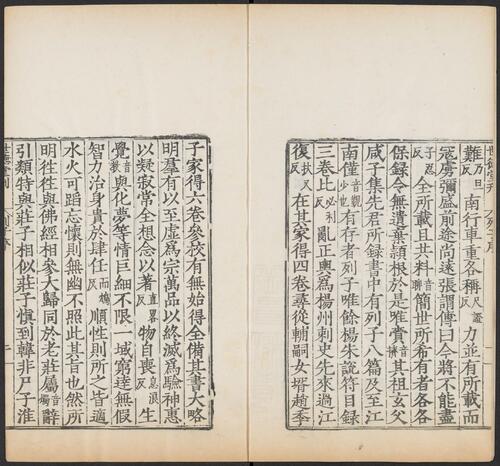 世德堂刊 列子序
難乃旦反南行車重各稱尺證反力並有所載而
寇虜彌盛前途尚遠張謂傅曰今將不能盡
子忍反全所載且共料音聊簡世所希有者各各
保録令無遺棄頴根於是唯賫音躋其祖玄父
咸子集先君所録書中有列子八篇及至江
南僅音覲少也有存者列子唯餘楊朱說符目録
三卷比必利反亂正輿為楊州刺史先來過江
復扶又反在其家得四卷尋從輔嗣女壻趙季
子家得六卷參校有無始得全備其書大略
明羣有以至虛為宗萬品以終滅為驗神惠
以疑寂常全想念以著直畧反物自喪息浪反生
覺音教與化夢等情巨細不限一域窮達無假
智力治身貴於肆任而鴆反順性則所之皆適
水火可蹈忘懷則無幽不照此其旨也然所
明往往與佛經相參大歸同於老莊屬音燭辭
引類特與莊子相似莊子慎到韓非尸子淮
世德堂刊 列子序 二